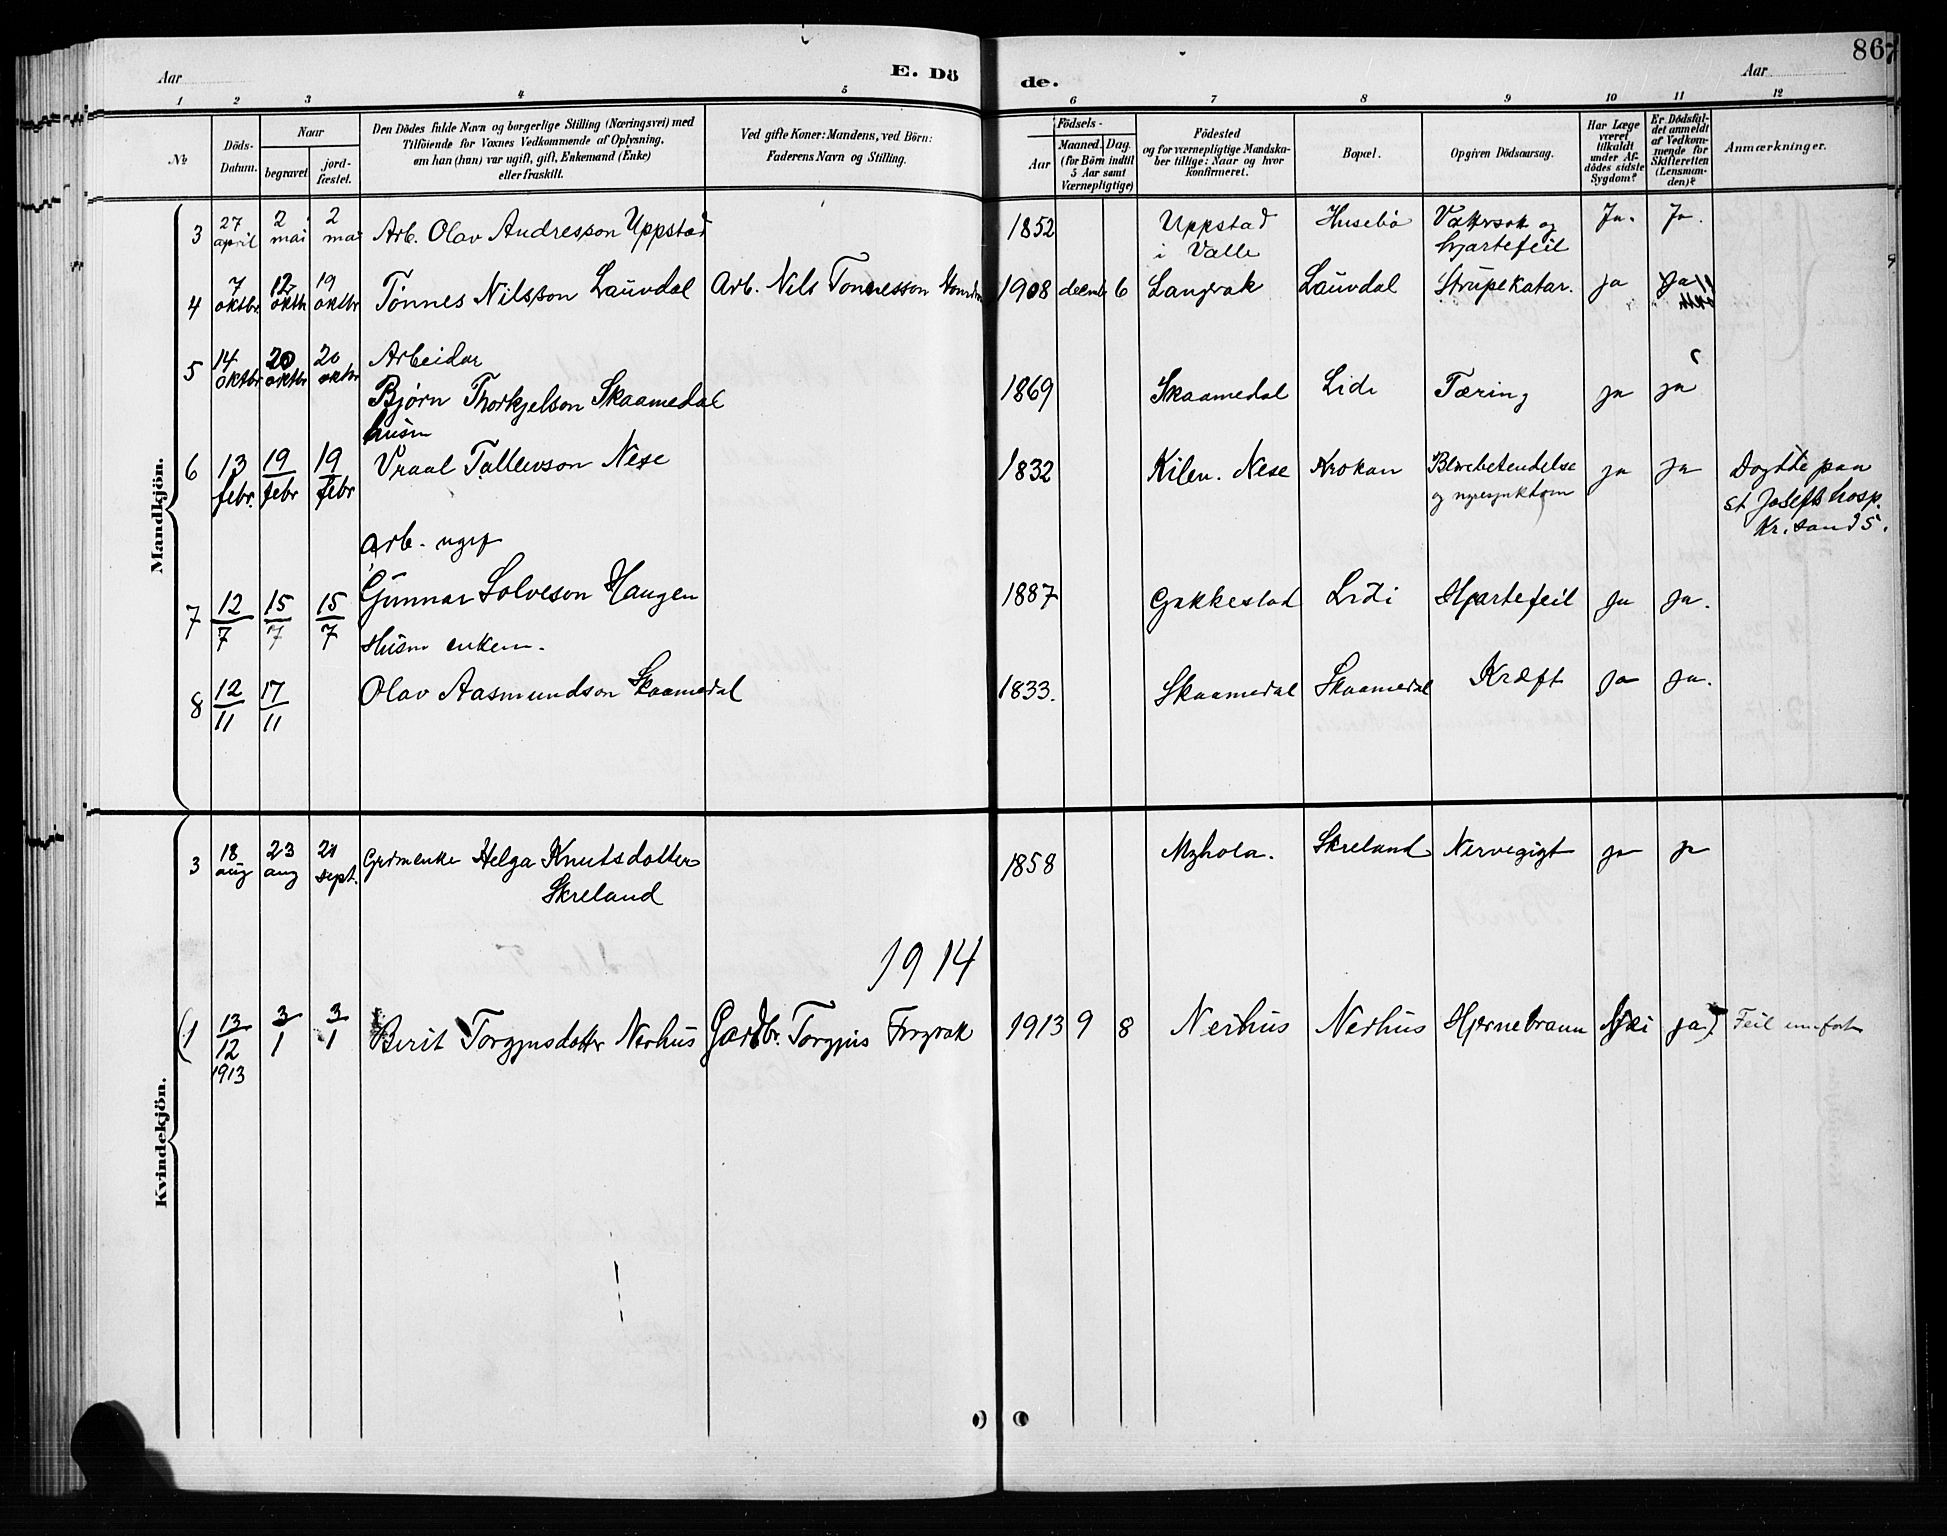 867
Aar
E. Dö
de.
Aar
1 2 3 4 5 6 7 8 9 10 11 12
No
Döds-
Datum.
Naar
begravet
jord-
fæstet.
Den Dödes fulde Navn og borgerlige Stilling (Næringsvei) med
Tilföiende for Voxnes Vedkommende af Oplysning,
om han (hun) var ugift, gift, Enkemand (Enke)
eller fraskilt.
Ved gifte Koner: Mandens, ved Börn:
Faderens Navn og Stilling.
Födsels-
Aar
Maaned. Dag.
(for Börn indtil
5 Aar samt
Værnepligtige)
Födested
og for værnepligtige Mandska-
ber tillige: Naar og hvor
konfirmeret.
Bopæl.
Opgiven Dödsaarsag.
Har Læge
været
tilkaldt
under Af-
dödes sidste
Sygdom?
Er Dödsfal-
det anmeldt
af Vedkom-
mende for
Skifteretten
(Lensman-
den)?
Anmærkninger.
Mandkjön.
3 27 april 2 mai 2 mai Arb. Olav Andresson Uppstad 1852 Uppstad i Valle Husebö Vattersot og hjartefeil Ja. Ja.
4 7 oktbr 12 oktbr 19 oktbr Tønnes Nilsson Lauvdal Arb. Nils Tønnesson 1908 decemb 6 Langvak Lauvdal Strupekatar. ja ja
5 14 oktbr 20 oktbr 20 oktbr Arbeidar
Bjørn Thorkjelson Skaamedal 1869 Skaamedal Lidi Tæring ja ja
husm
6 13 febr. 19 febr 19 febr Vraal Tallevson Nese 1832 Kilen. Nese Krokan Blærebetendelse og nyresjukdom ja ja Døydde paa
st Josefs hosp.
Kr.sand S.
arb. ugif
7 12/7 15/7 15/7 Gunnar Solveson Haugen 1887 Gakkestad Lidi Hjartefeil ja ja.
Husm enkem.
8 12/11 17/11 Olav Aasmundson Skaamedal 1833. Skaamedal Skaamedal Kræft ja ja.
Kvindekjön.
3 18 aug 23 aug 21 sept. Gardmenke Helga Knutsdotter
Skreland 1858 Myhola. Skreland Nervegigt ja ja
1914
(1 13/12 1913 3/1 3/1 Birit Torgjusdotter Nerhus Gardbr. Torgjus Frøyrak 1913 9 8 Nerhus Nerhus Hjernebraum Nei ja) Feil innført